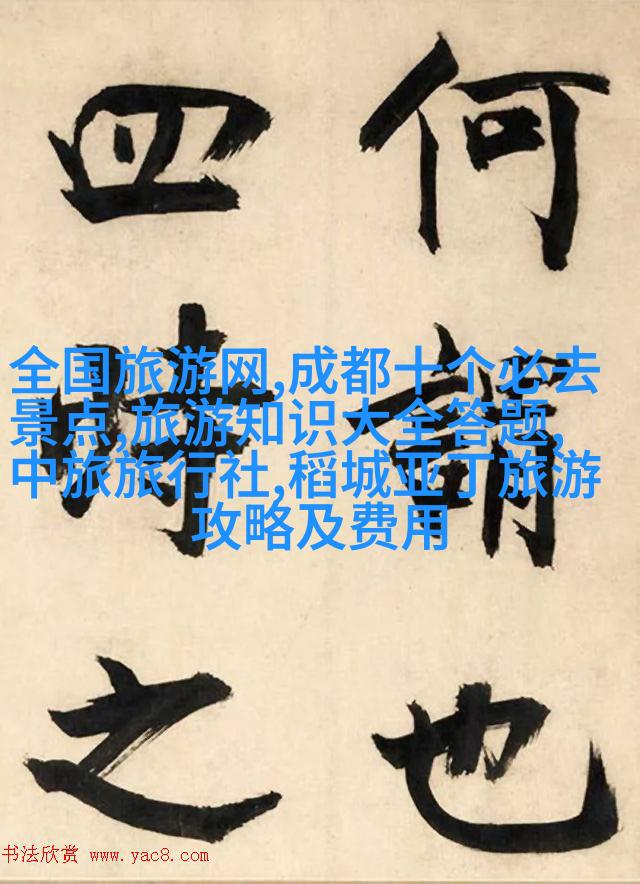 何謂也
四時之
全国旅游网,成都十个必去
景点,旅游知识大全答题,
中旅旅行社,稻城亚丁旅游
攻略及费用
书法欣赏 www.yac8.com